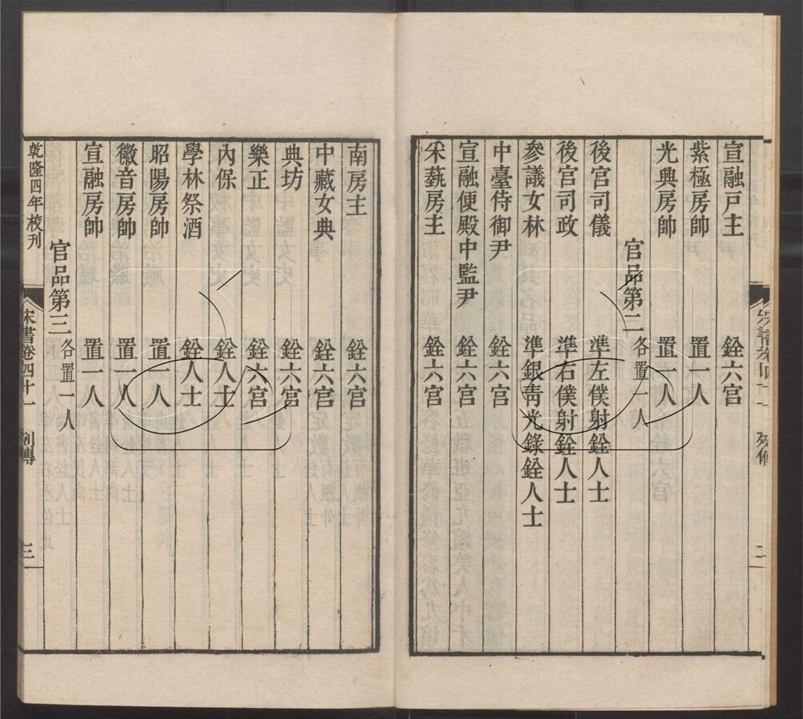 宣融戶主 銓六宮
紫極房帥 置一人
光興房帥 置一人
官品第二 各置一人
後宮司儀 準左僕射銓人士
後宮司政 準右僕射銓人士
參議女林 準銀青光錄銓人士
中臺侍御尹 銓六宮
宣融便殿中監尹 銓六宮
采蓺房主 銓六宮
南房主 銓六宮
中藏女典 銓六宮
典坊 銓六宮
樂正 銓六宮
內保 銓人士
學林祭酒 銓人士
昭陽房帥 置一人
徽音房帥 置一人
宣融房帥 置一人
官品第三 各置一人
乾隆四年校刊 宋書卷四十一 列傳 三